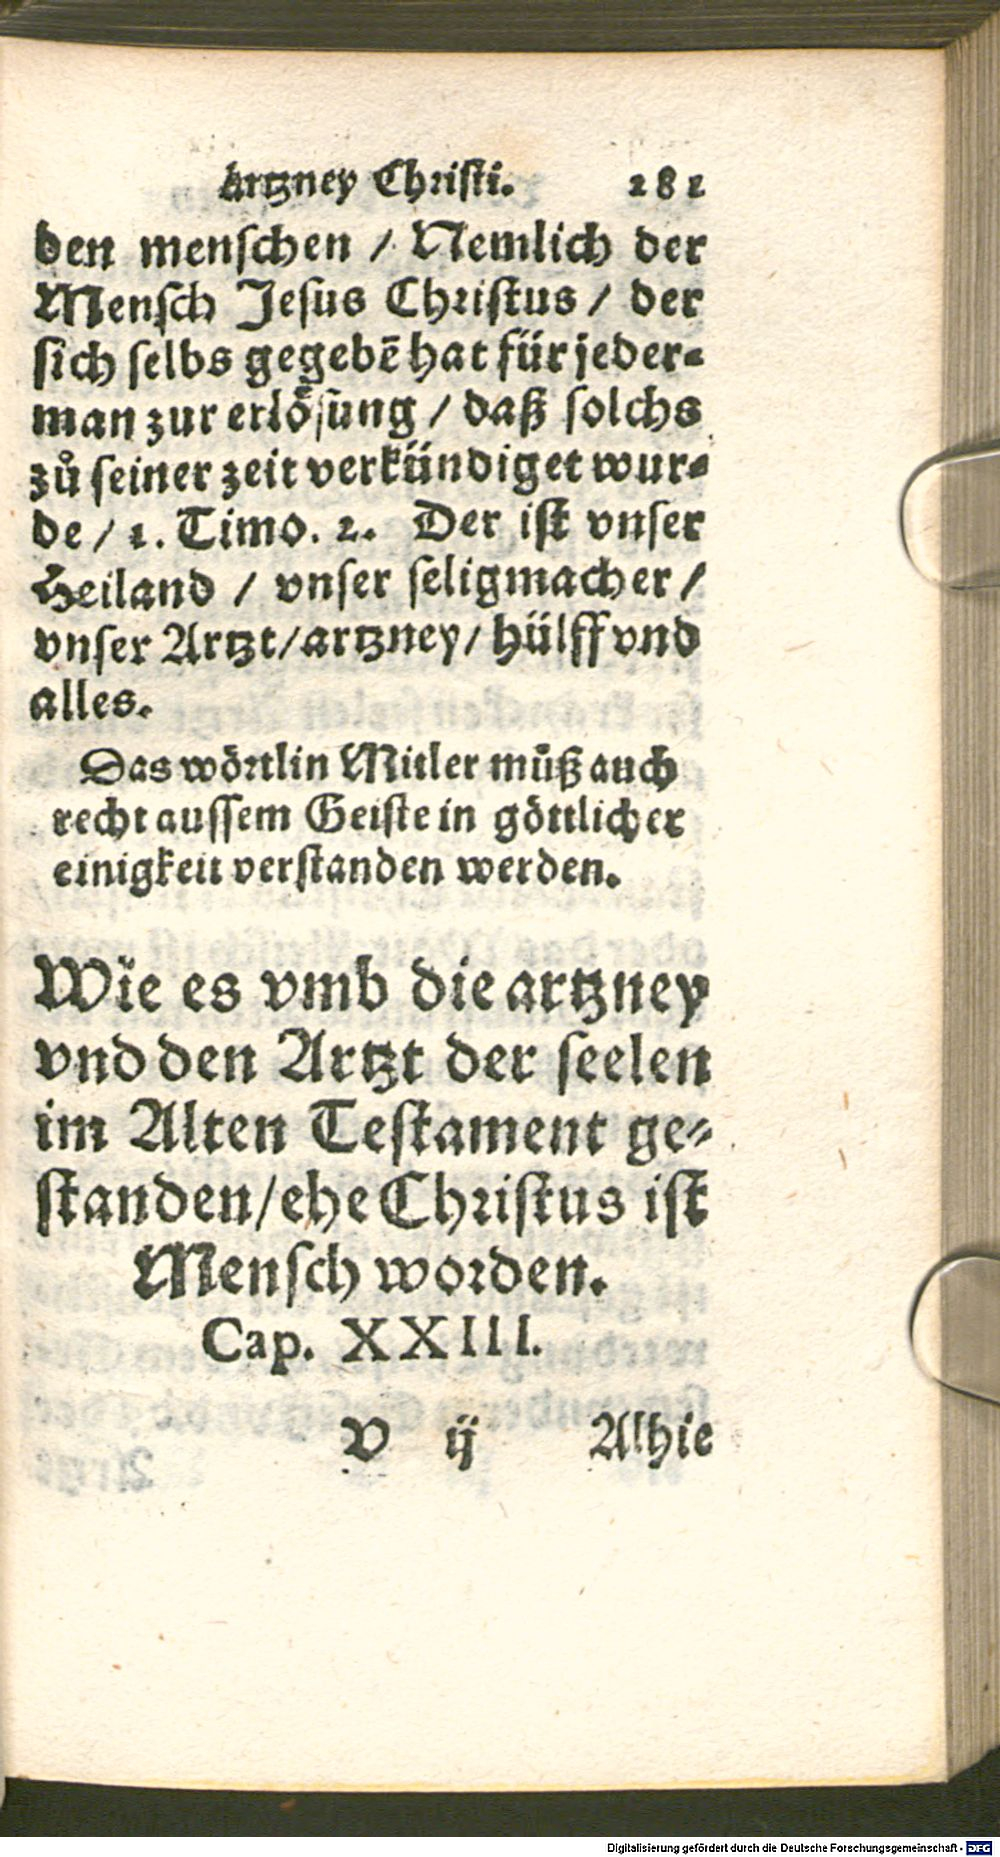 artzney Christi. 281
den menschen / Nemlich der
Mensch Jesus Christus / der
sich selbs gegebē hat für jeder-
man zur erlösung / daß solchs
zů seiner zeit verkündiget wur-
de / 1. Timo. 2. Der ist vnser
Heiland / vnser seligmacher /
vnser Artzt / artzney / hülff vnd
alles.
Das wörtlin Mitler můß auch
recht aussem Geiste in göttlicher
einigkeit verstanden werden.
Wie es vmb die artzney
vnd den Artzt der seelen
im Alten Testament ge-
standen / ehe Christus ist
Mensch worden.
Cap. XXIII.
V ij Alhie
Digitalisierung gefördert durch die Deutsche Forschungsgemeinschaft - DFG